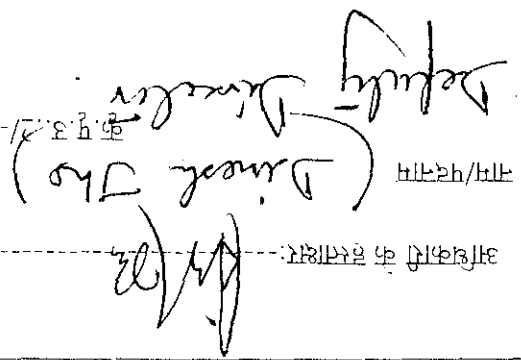 अधिकारी के हस्ताक्षर:
नाम/पदनाम (Dinesh Jha)
Deputy Director
कृ.पृ.उ.../-